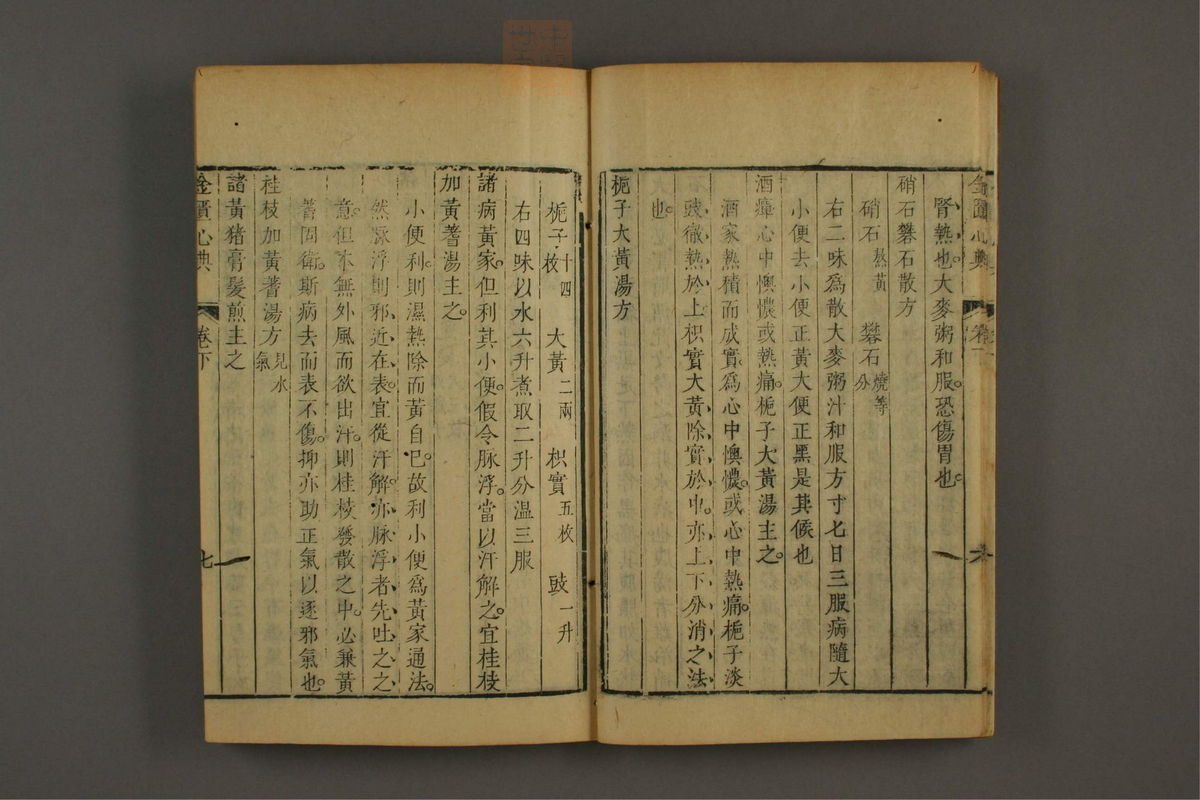 腎熱也大麥粥和服恐傷胃也
硝石礬石散方
硝石熬黃 礬石燒等分
右二味爲散大麥粥汁和服方寸匕日三服病隨大
小便去小便正黃大便正黑是其候也
酒癉心中懊憹或熱痛梔子大黃湯主之
酒家熱積而成實爲心中懊憹或心中熱痛梔子淡
豉徹熱於上枳實大黃除實於中亦上下分消之法
也
梔子大黃湯方
梔子十四枚 大黃二兩 枳實五枚 豉一升
右四味以水六升煮取二升分溫三服
諸病黃家但利其小便假令脉浮當以汗解之宜桂枝
加黃蓍湯主之
小便利則濕熱除而黃自已故利小便爲黃家通法
然脉浮則邪近在表宜從汗解亦脉浮者先吐之之
意但本無外風而欲出汗則桂枝發散之中必兼黃
蓍固衛斯病去而表不傷抑亦助正氣以逐邪氣也
桂枝加黃蓍湯方見水氣
諸黃猪膏髮煎主之
金匱心典 卷下 七